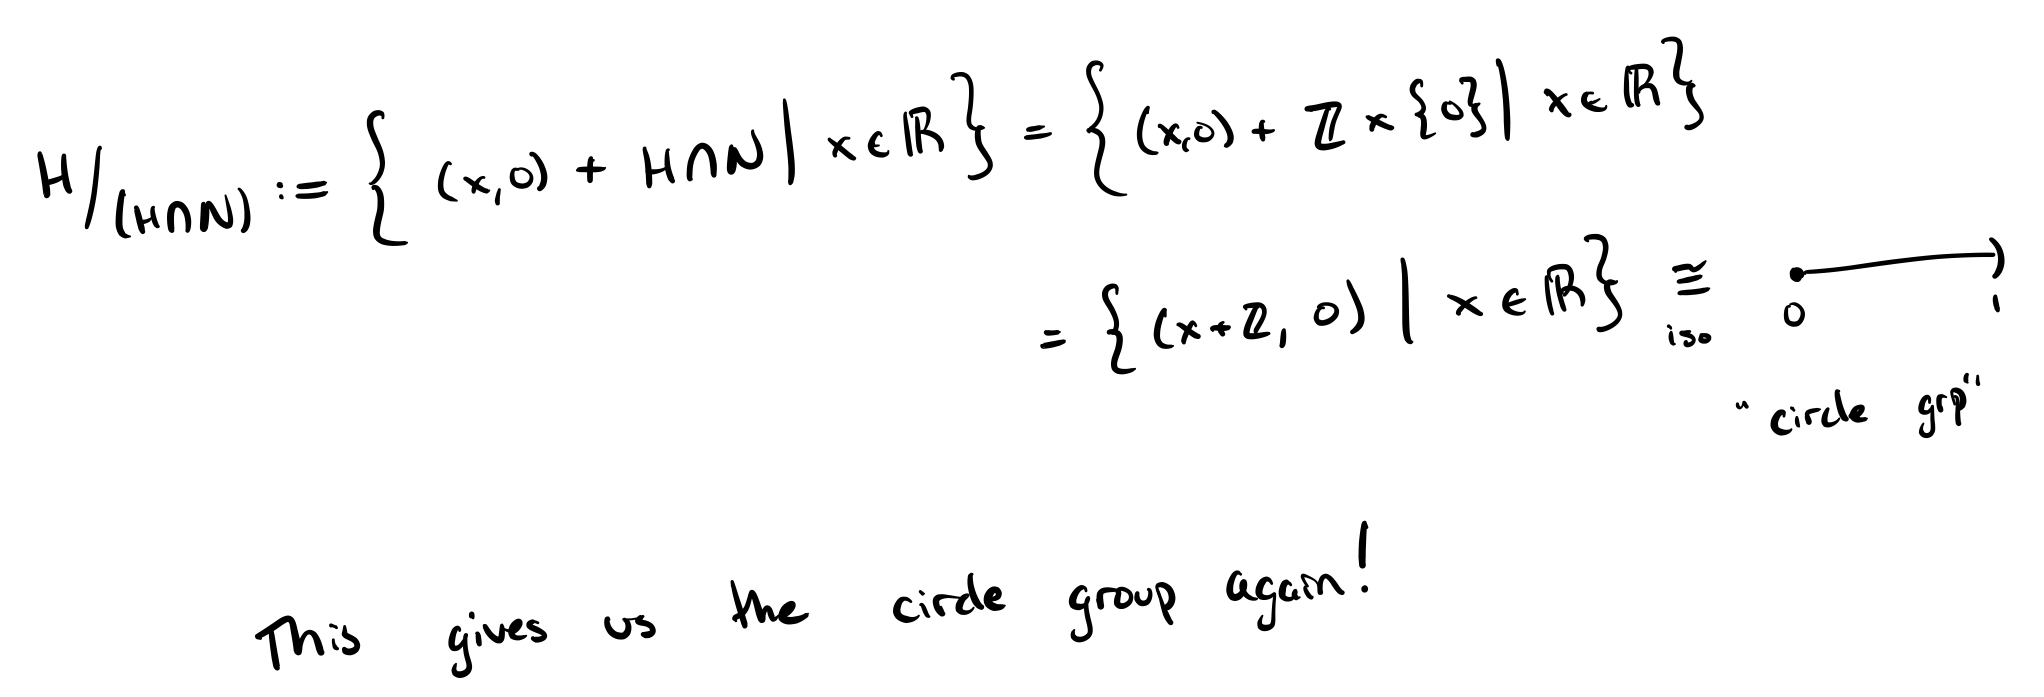 H/(H∩N) := { (x,0) + H∩N | x ∈ ℝ } = { (x,0) + ℤ × {0} | x ∈ ℝ }
= { (x+ℤ, 0) | x ∈ ℝ } ≅ 0 1
iso
"circle grp"
This gives us the circle group again!